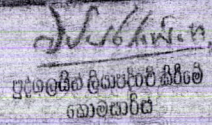 පුද්ගලයින් ලියාපදිංචි කිරීමේ
කොමසාරිස්